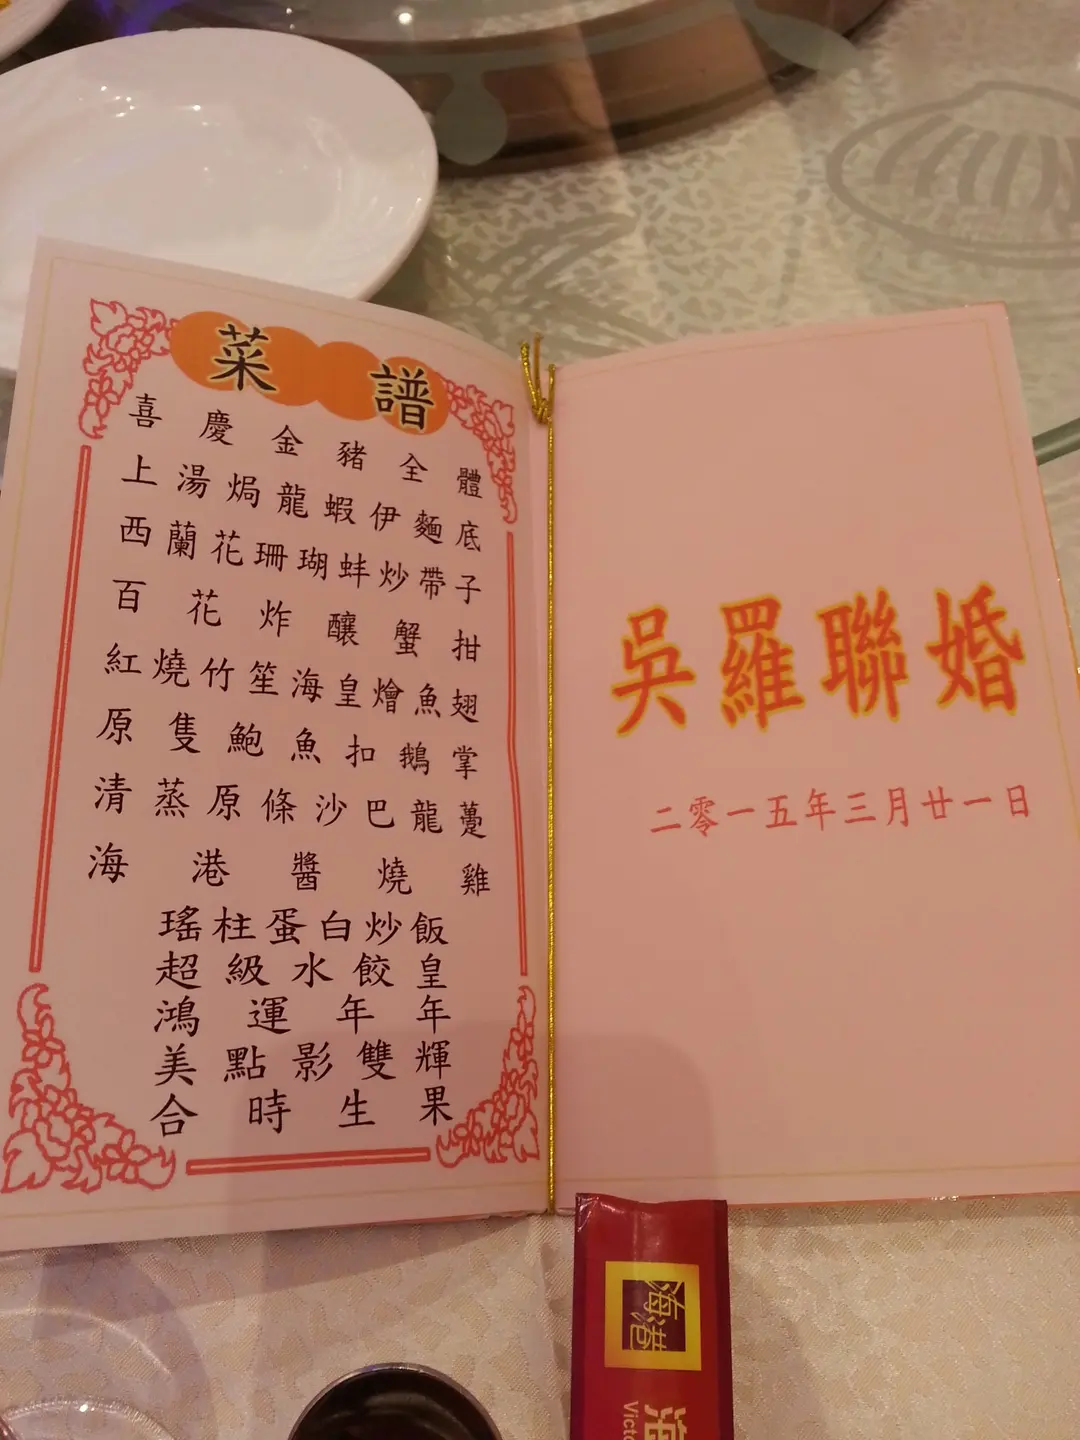 菜譜
喜慶金豬全體
上湯焗龍蝦伊麵底
西蘭花珊瑚蚌炒帶子
百花炸釀蟹拑
紅燒竹笙海皇燴魚翅
原隻鮑魚扣鵝掌
清蒸原條沙巴龍躉
海港醬燒雞
瑤柱蛋白炒飯
超級水餃皇
鴻運年年
美點影雙輝
合時生果
吳羅聯婚
二零一五年三月廿一日
海港